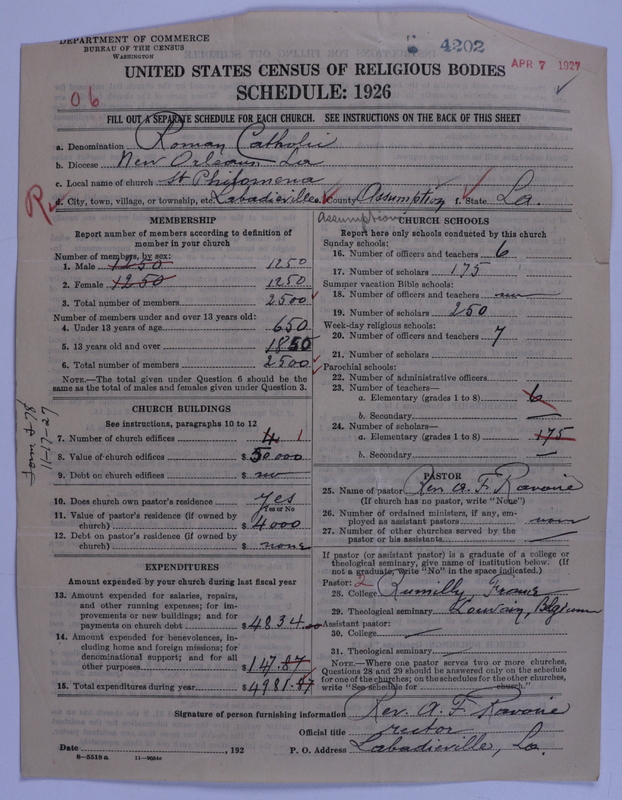 DEPARTMENT OF COMMERCE
BUREAU OF THE CENSUS
WASHINGTON
4202
APR 7 1927
UNITED STATES CENSUS OF RELIGIOUS BODIES
SCHEDULE: 1926
06
FILL OUT A SEPARATE SCHEDULE FOR EACH CHURCH. SEE INSTRUCTIONS ON THE BACK OF THIS SHEET
a. Denomination Roman Catholic
b. Diocese New Orleans La
c. Local name of church St Philomena
R
d. City, town, village, or township, etc. Labadieville e. County Assumption f. State La.
Assumption
MEMBERSHIP
Report number of members according to definition of
member in your church
Number of members, by sex:
1. Male 1250 1250
2. Female 1250 1250
3. Total number of members 2500
Number of members under and over 13 years old:
4. Under 13 years of age 650
5. 13 years old and over 1850
6. Total number of members 2500
NOTE.—The total given under Question 6 should be the
same as the total of males and females given under Question 3.
CHURCH BUILDINGS
See instructions, paragraphs 10 to 12
7. Number of church edifices 1
8. Value of church edifices $ 50.000
9. Debt on church edifices $
10. Does church own pastor's residence yes
Yes or No
11. Value of pastor's residence (if owned by
church) $ 4000
12. Debt on pastor's residence (if owned by
church) $ none
EXPENDITURES
Amount expended by your church during last fiscal year
13. Amount expended for salaries, repairs,
and other running expenses; for im-
provements or new buildings; and for
payments on church debt $ 4834.00
14. Amount expended for benevolences, in-
cluding home and foreign missions; for
denominational support; and for all
other purposes $ 147.87
15. Total expenditures during year $ 4981.87
CHURCH SCHOOLS
Report here only schools conducted by this church
Sunday schools:
16. Number of officers and teachers 6
17. Number of scholars 175
Summer vacation Bible schools:
18. Number of officers and teachers
19. Number of scholars 250
Week-day religious schools:
20. Number of officers and teachers 7
21. Number of scholars
Parochial schools:
22. Number of administrative officers
23. Number of teachers—
a. Elementary (grades 1 to 8) 6
b. Secondary —
24. Number of scholars—
a. Elementary (grades 1 to 8) 175
b. Secondary —
PASTOR
25. Name of pastor Rev. A. F. Ravoire
(If church has no pastor, write "None")
26. Number of ordained ministers, if any, em-
ployed as assistant pastors none
27. Number of other churches served by the
pastor or his assistants —
If pastor (or assistant pastor) is a graduate of a college or
theological seminary, give name of institution below. (If
not a graduate, write "No" in the space indicated.)
Pastor: 2
28. College Rumilly, France
29. Theological seminary Louvain, Belgium
Assistant pastor:
30. College —
31. Theological seminary —
NOTE.—Where one pastor serves two or more churches,
Questions 28 and 29 should be answered only on the schedule
for one of the churches; on the schedules for the other churches,
write "See schedule for church."
Signature of person furnishing information Rev. A. F. Ravoire
Official title rector
Date , 192 P. O. Address Labadieville, La.
8—5518a 11—9654
11-17-27